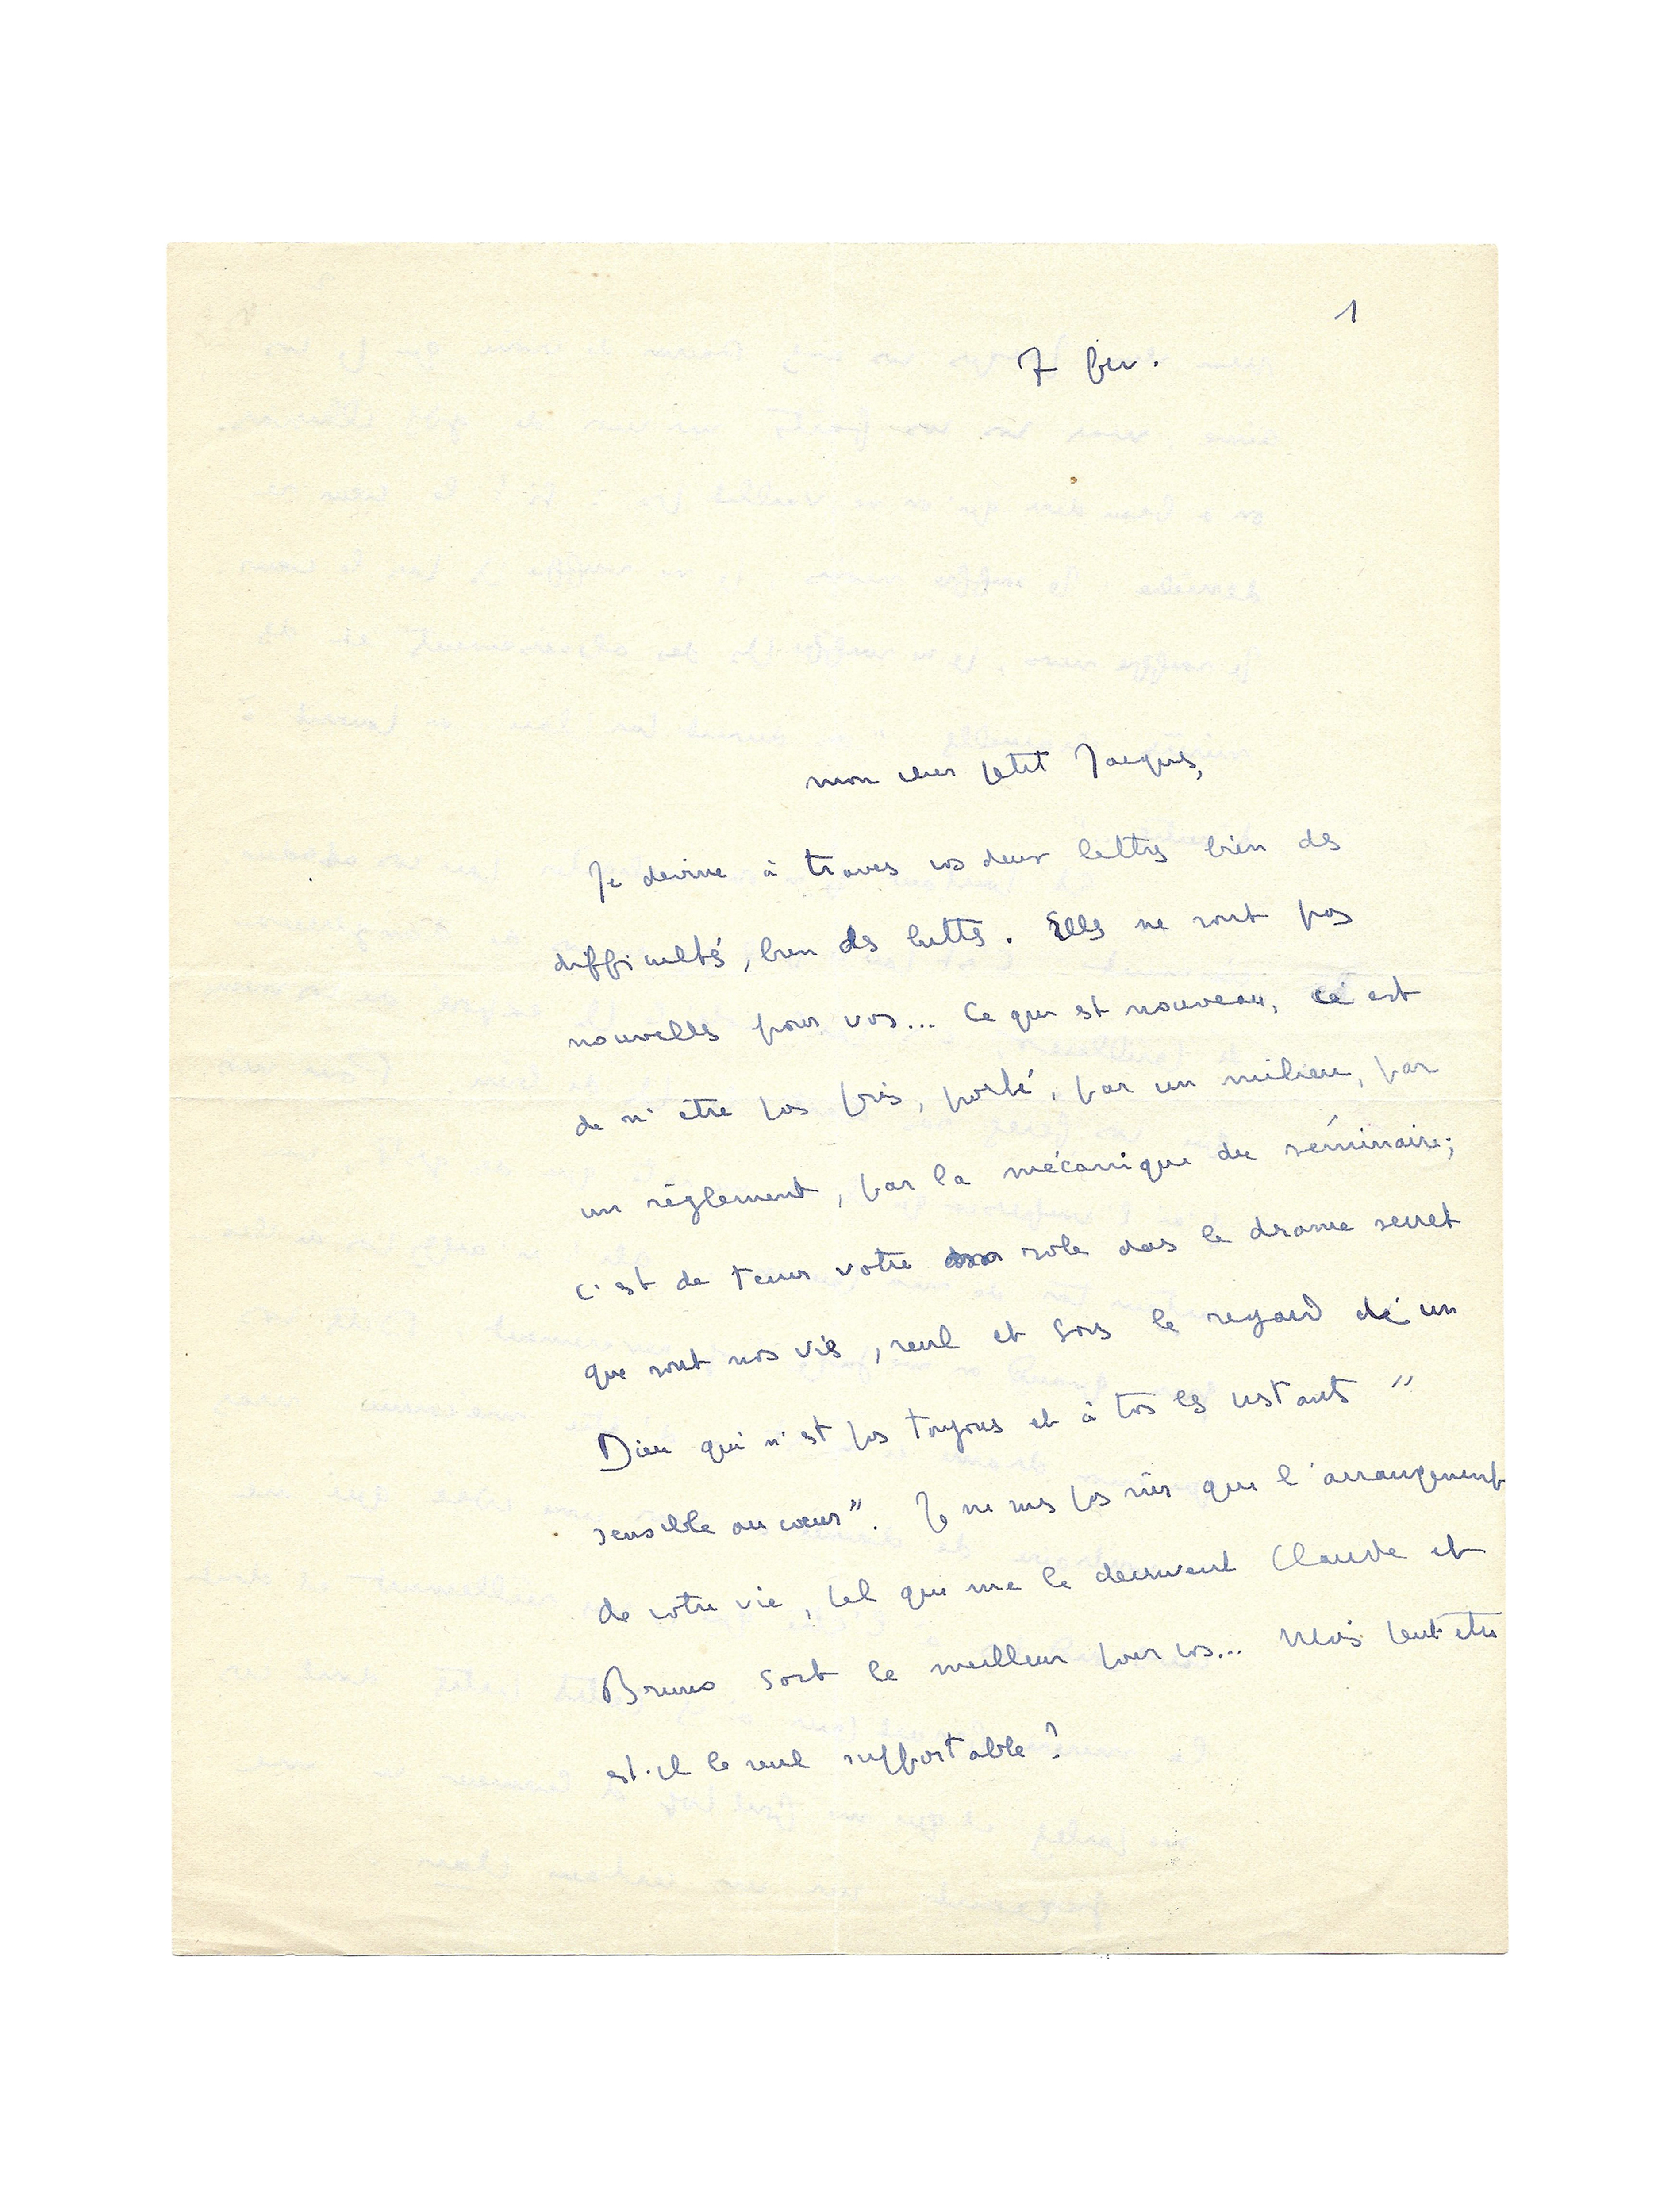 1
7 fev.
mon cher petit Jacques,
Je devine à travers vos deux lettres bien des
difficultés, bien des luttes. Elles ne sont pas
nouvelles pour vous... Ce qui est nouveau, c'est
de n'être pas pris, porté, par un milieu, par
un règlement, par la mécanique du séminaire;
c'est de tenir votre rôle dans le drame secret
que sont nos vies, seul et sous le regard d'un
Dieu qui n'est pas toujours et à tous les instants "
sensible au cœur". Je ne suis pas sûr que l'arrangement
de votre vie, tel que me le décrivent Claude et
Bruno soit le meilleur pour vous... Mais peut-être
est-il le seul supportable?